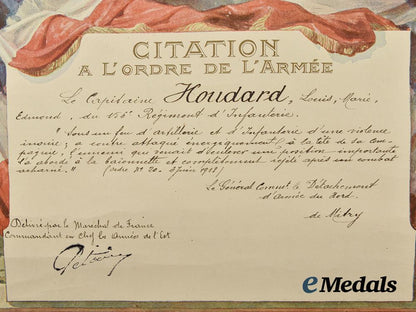 CITATION
A L'ORDRE DE L'ARMÉE
Le Capitaine Houdard, Louis, Marie,
Edmond, du 156e Régiment d'Infanterie.
"Sous un feu d'artillerie et d'Infanterie d'une violence
inouïe; a contre attaqué energiquement à la tête de sa com
pagnie, l'ennemi qui venait d'enlever une position importante
l'a abordé à la baïonnette et complètement rejeté après un combat
acharné." (ordre No 20. 2 Juin 1918)
Le Général Commdt le Détachement
d'Armée du Nord.
de Mitry
Délivré par le Maréchal de France
Commandant en Chef les Armées de l'Est
eMedals